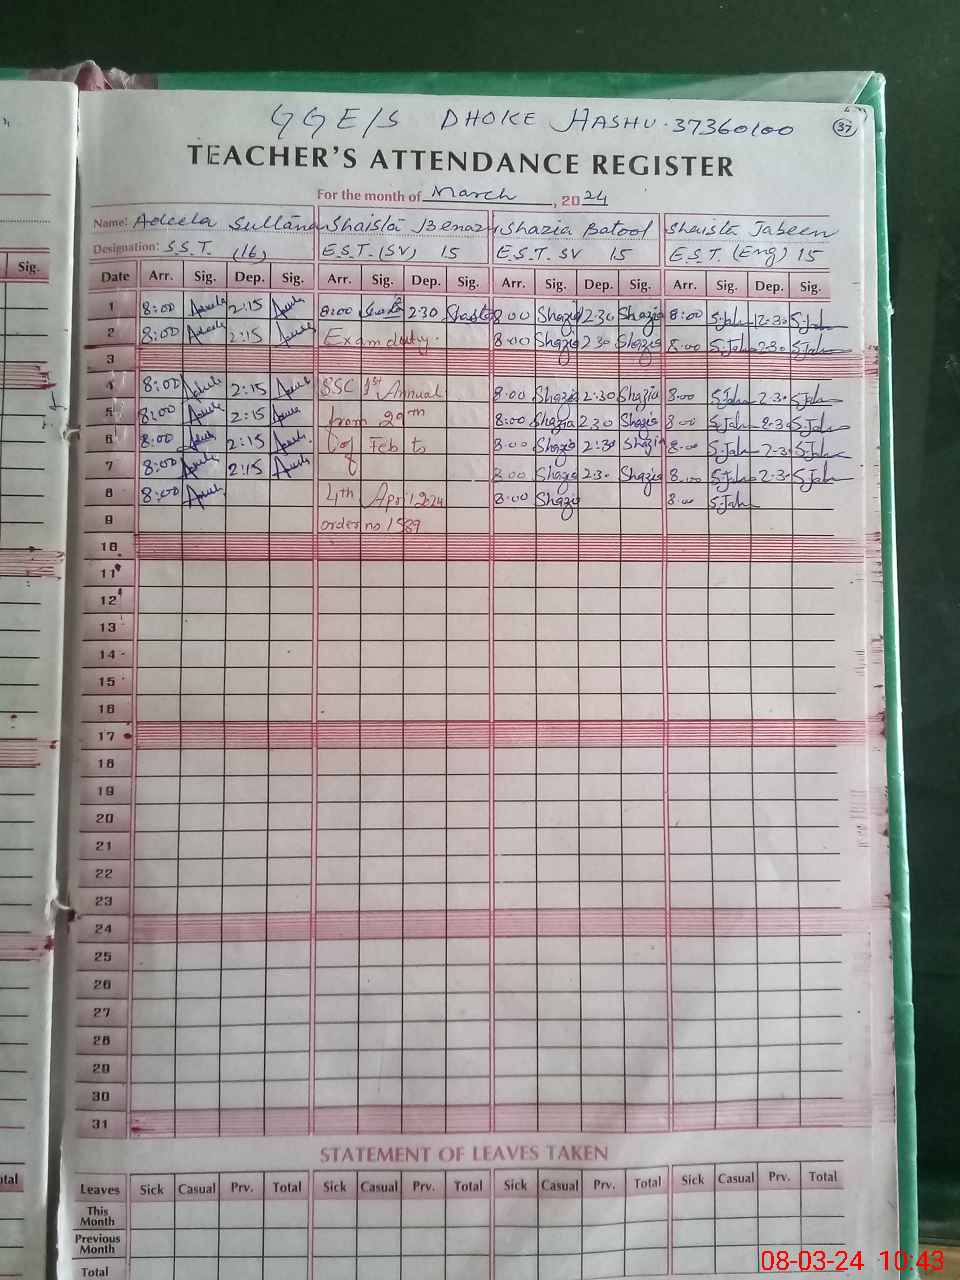 GGE/S DHOKE HASHU. 37360100 37
TEACHER'S ATTENDANCE REGISTER
For the month of March, 2024
Name: Adeela Sultana Shaista Shazia Batool Shaista Jabeen
Designation: S.S.T. (16) E.S.T. (SV) 15 E.S.T. SV 15 E.S.T. (Eng) 15
Sig. Date Arr. Sig. Dep. Sig. Arr. Sig. Dep. Sig. Arr. Sig. Dep. Sig. Arr. Sig. Dep. Sig.
1 8:00 2:15 8:00 2:30 8:00 Shazia 2:30 Shazia 8:00 S.Jab 2:30 S.Jab
2 8:00 2:15 Exam duty. 8:00 Shazia 2:30 Shazia 8:00 S.Jab 2:30 S.Jab
3
4 8:00 2:15 SSC 1st Annual 8:00 Shazia 2:30 Shazia 8:00 S.Jab 2:30 S.Jab
5 8:00 2:15 from 29th 8:00 Shazia 2:30 Shazia 8:00 S.Jab 2:30 S.Jab
6 8:00 2:15 of Feb to 8:00 Shazia 2:30 Shazia 8:00 S.Jab 2:30 S.Jab
7 8:00 2:15 8:00 Shazia 2:30 Shazia 8:00 S.Jab 2:30 S.Jab
8 8:00 4th April 2024 8:00 Shazia 8:00 S.Jab
9 order no 1589
10
11
12
13
14
15
16
17
18
19
20
21
22
23
24
25
26
27
28
29
30
31
STATEMENT OF LEAVES TAKEN
Leaves Sick Casual Prv. Total Sick Casual Prv. Total Sick Casual Prv. Total Sick Casual Prv. Total
This Month
Previous Month
Total
08-03-24 10:43